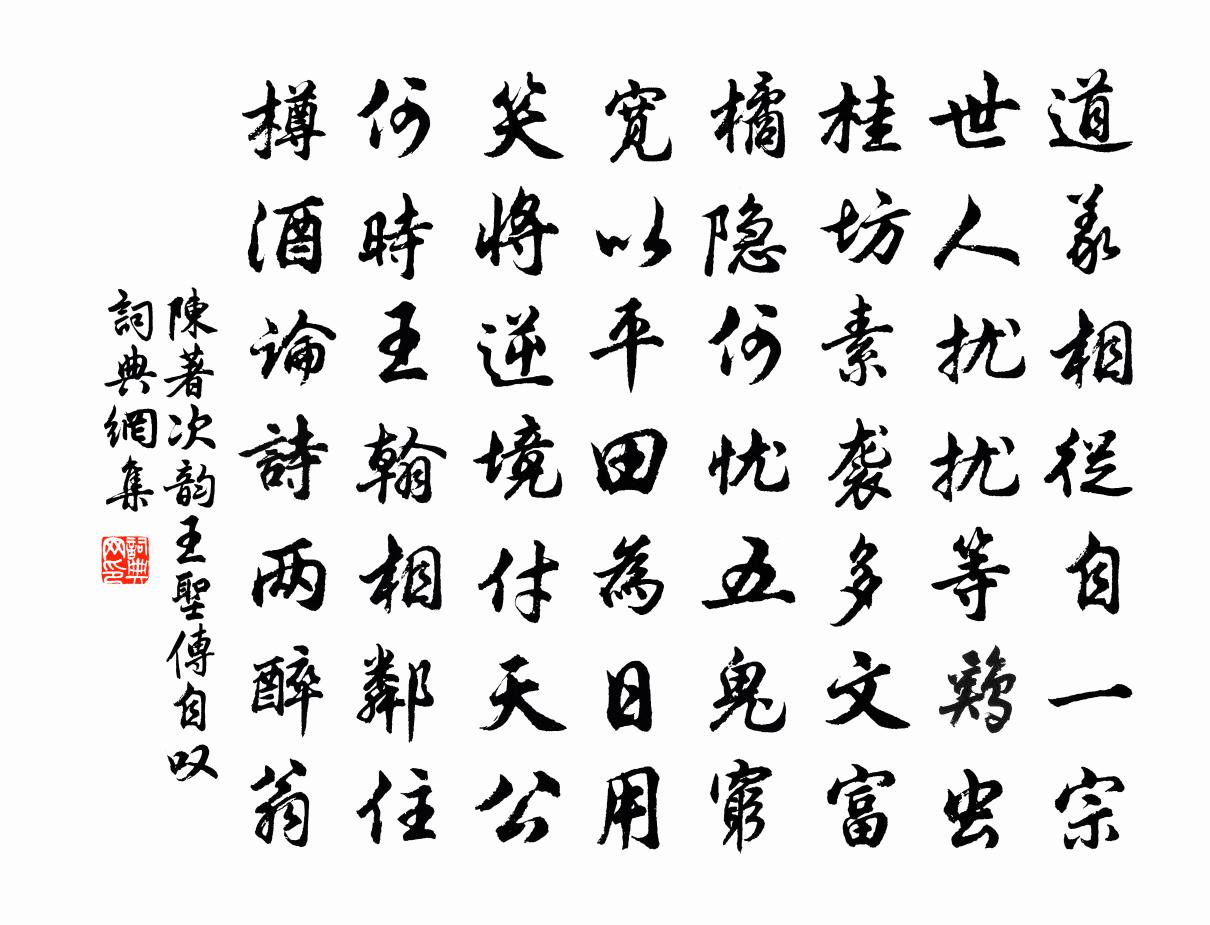 道義相從自一宗
世人扰扰等鷄虫
桂坊素袭多文富
橘隐何忧五鬼窮
寬以平田為日用
笑將逆境付天公
何時王翰相鄰住
樽酒論詩兩醉翁
陳著次韵王聖傳自叹
詞典網集
詞典网印